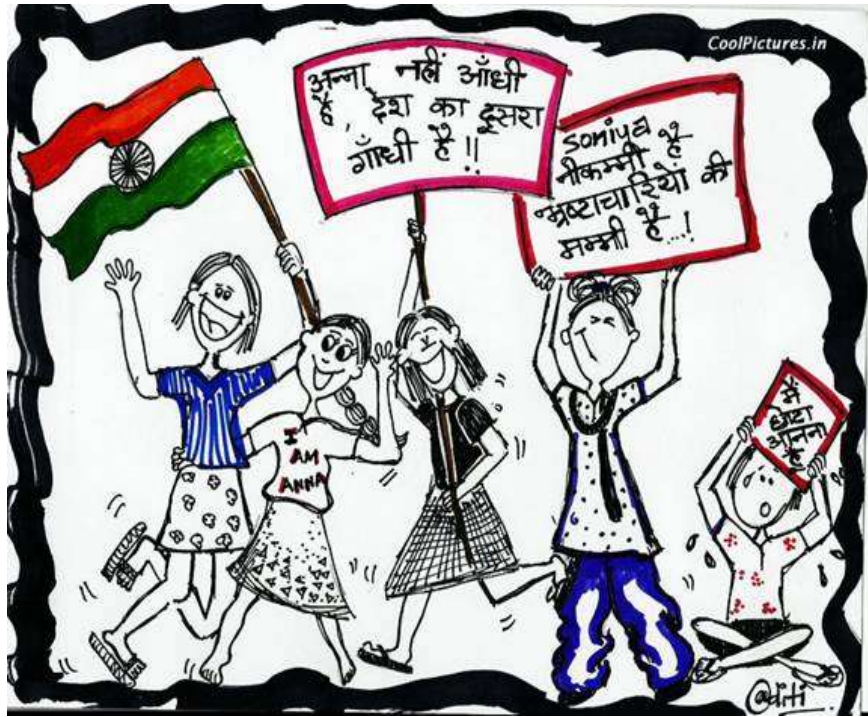 CoolPictures.in
अन्ना नहीं आँधी
है, देश का दूसरा
गाँधी है!!
नीकम्मी है
भ्रष्टाचारियों की
मम्मी है...!
I
AM
ANNA
मैं
छोटा
अन्ना
है
@diti